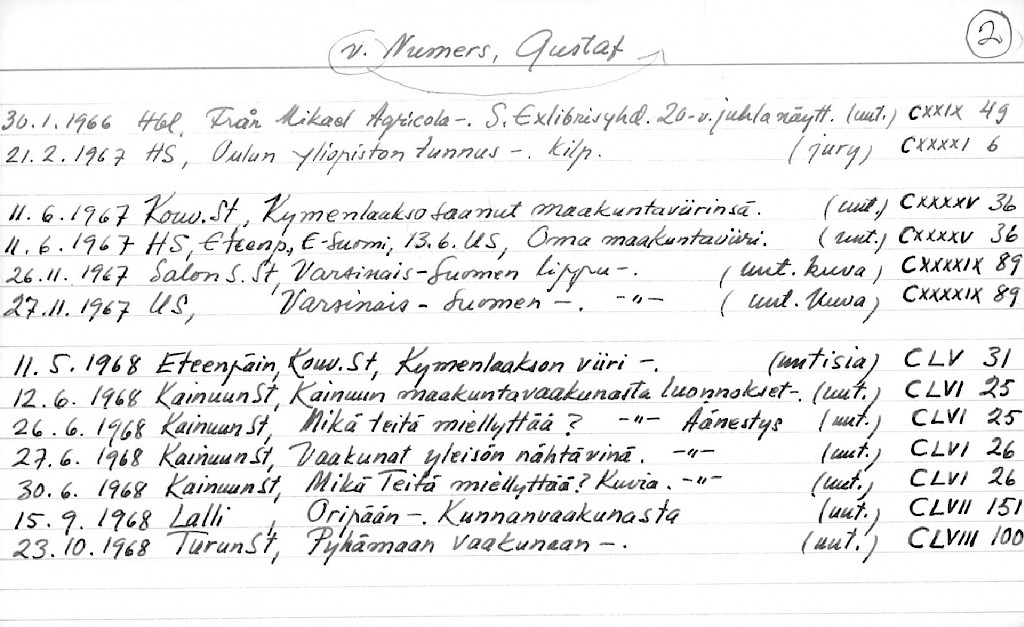 v. Numers, Gustaf
2
30.1.1966 Hbl, Från Mikael Agricola -. S. Exlibrisyhd. 20-v. juhlanäytt. (uut.) CXXIX 49
21.2.1967 HS, Oulun yliopiston tunnus -. kilp. (jury) CXXXXI 6
11.6.1967 Kouv.St, Kymenlaakso saanut maakuntaviirinsä. (uut.) CXXXXV 36
11.6.1967 HS, Eteenp., E-Suomi, 13.6. US, Oma maakuntaviiri. (uut.) CXXXXV 36
26.11.1967 Salon S. St, Varsinais-Suomen lippu -. (uut. kuva) CXXXXIX 89
27.11.1967 US, Varsinais-Suomen -. -"- (uut. kuva) CXXXXIX 89
11.5.1968 Eteenpäin, Kouv.St, Kymenlaakson viiri -. (uutisia) CLV 31
12.6.1968 KainuunSt, Kainuun maakuntavaakunasta luonnokset -. (uut.) CLVI 25
26.6.1968 KainuunSt, Mikä teitä miellyttää? -"- Äänestys (uut.) CLVI 25
27.6.1968 KainuunSt, Vaakunat yleisön nähtävinä. -"- (uut.) CLVI 26
30.6.1968 KainuunSt, Mikä Teitä miellyttää? Kuvia. -"- (uut.) CLVI 26
15.9.1968 Lalli, Oripään -. Kunnanvaakunasta (uut.) CLVII 151
23.10.1968 TurunSt, Pyhämaan vaakunaan -. (uut.) CLVIII 100